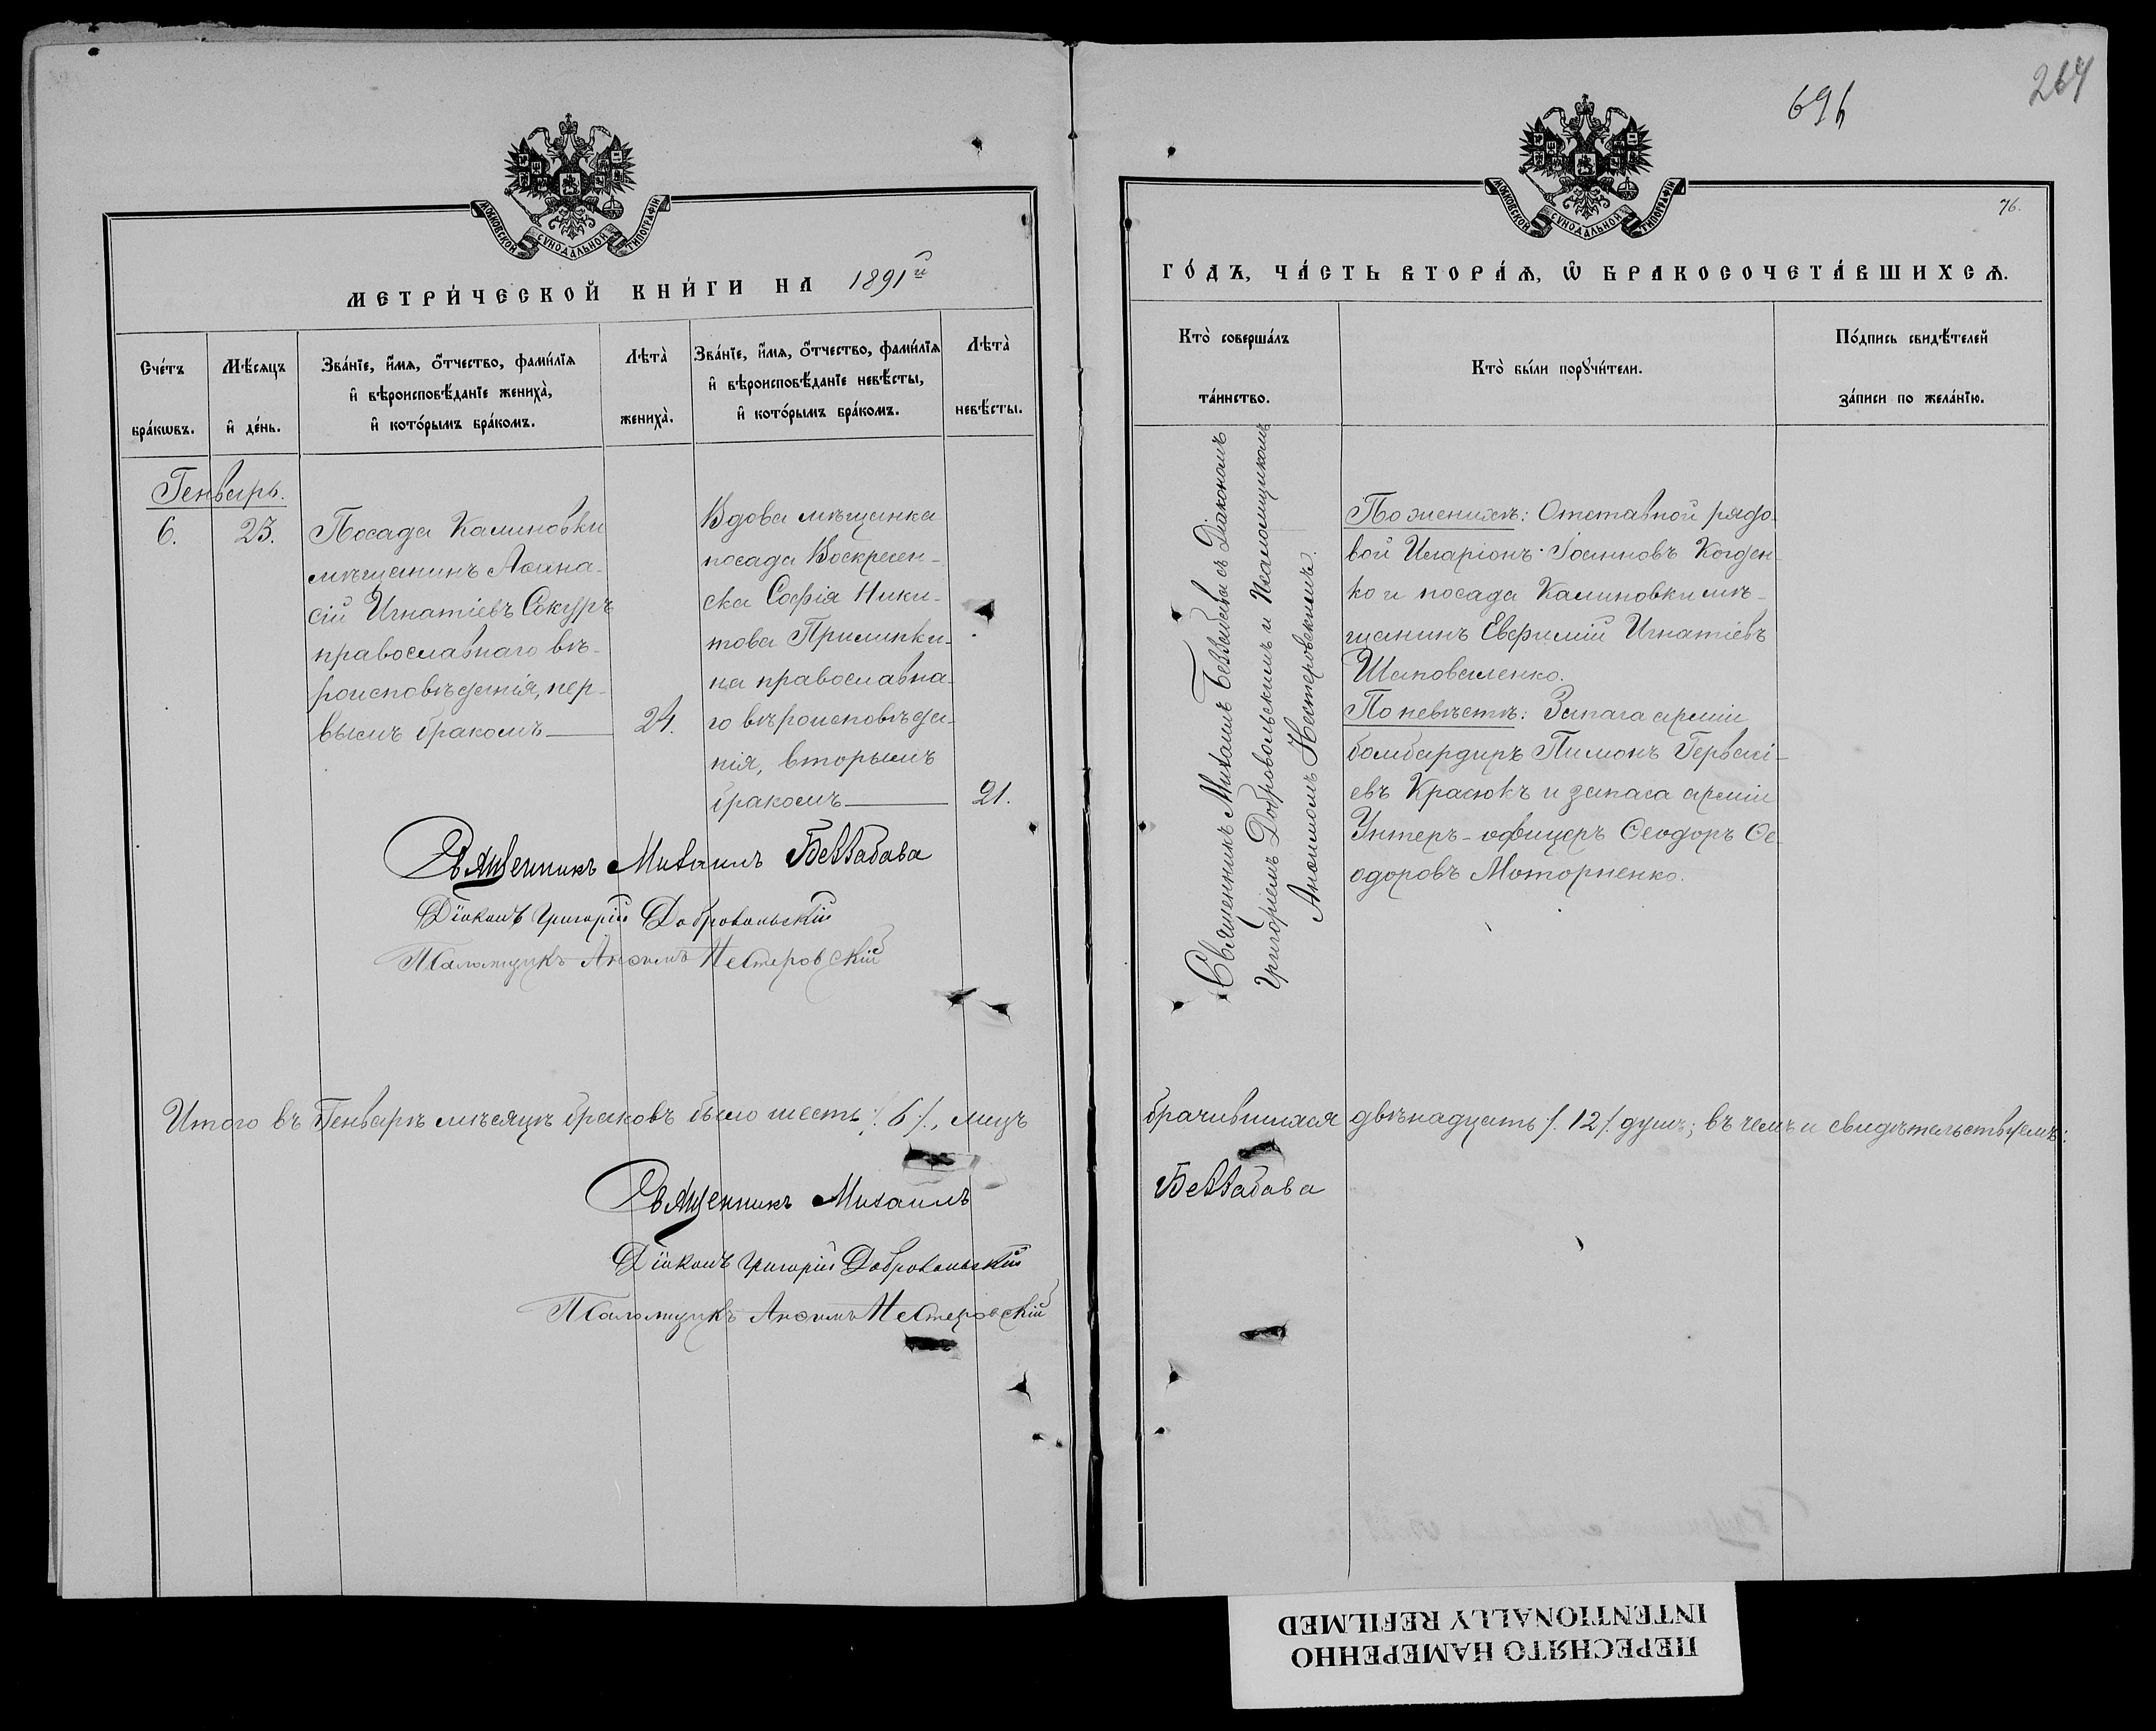 264
696
76.
МОСКОВСКОЙ СѴНОДАЛЬНОЙ ТИПОГРАФІИ
МЕТРИ́ЧЕСКОЙ КНИ́ГИ НА 1891й
Сче́тъ бра́кѡвъ.
Мѣ́сяцъ и҆ де́нь.
Зва́нїе, и҆́мѧ, ѻ҆́тчество, фами́лїѧ
и҆ вѣроисповѣ́данїе жениха̀,
и҆ кото́рымъ бра́комъ.
Лѣта̀ жениха̀.
Зва́нїе, и҆́мѧ, ѻ҆́тчество, фами́лїѧ
и҆ вѣроисповѣ́данїе невѣ́сты,
и҆ кото́рымъ бра́комъ.
Лѣта̀ невѣ́сты.
Генварь.
6. 23.
Посада Калиновки
мѣщанинъ Аѳана-
сій Игнатіевъ Сокуръ
православнаго вѣ-
роисповѣданія, пер-
вымъ бракомъ 24.
Вдова мѣщанка
посада Воскресен-
ска Софія Ники-
това Прилипки-
на православна-
го вѣроисповѣда-
нія, вторымъ
бракомъ 21.
Священникъ Михаилъ Беззабава
Діаконъ Григорій Добровольскій
Псаломщикъ Анѳимъ Нестеровскій
Итого въ Генварѣ мѣсяцѣ браковъ было шесть /. 6 /., лицъ
Священникъ Михаилъ
Діаконъ Григорій Добровольскій
Псаломщикъ Анѳимъ Нестеровскій
МОСКОВСКОЙ СѴНОДАЛЬНОЙ ТИПОГРАФІИ
ГО́ДЪ, ЧА́СТЬ ВТОРА́Ѧ, Ѡ҆ БРАКОСОЧЕТА́ВШИХСѦ.
Кто̀ соверша́лъ
та́инство.
Кто̀ бы́ли порꙋчи́тели.
По́дпись свидѣ́телей
за́писи по жела́нїю.
Священникъ Михаилъ Беззабава съ Діакономъ
Григоріемъ Добровольскимъ и Псаломщикомъ
Анѳимомъ Нестеровскимъ.
По женихѣ: Отставной рядо-
вой Иларіонъ Іоанновъ Когден-
ко и посада Калиновки мѣ-
щанинъ Евфимій Игнатіевъ
Шаповаленко.
По невѣстѣ: Запаса арміи
бомбардиръ Пимонъ Герваcі-
евъ Красюкъ и запаса арміи
Унтеръ-офицеръ Ѳеодоръ Ѳе-
одоровъ Моторненко.
брачившихся двѣнадцать /. 12 /. душъ; въ чемъ и свидѣтельствуемъ:
Беззабава
ПЕРЕСНЯТО НАМЕРЕННО
INTENTIONALLY REFILMED